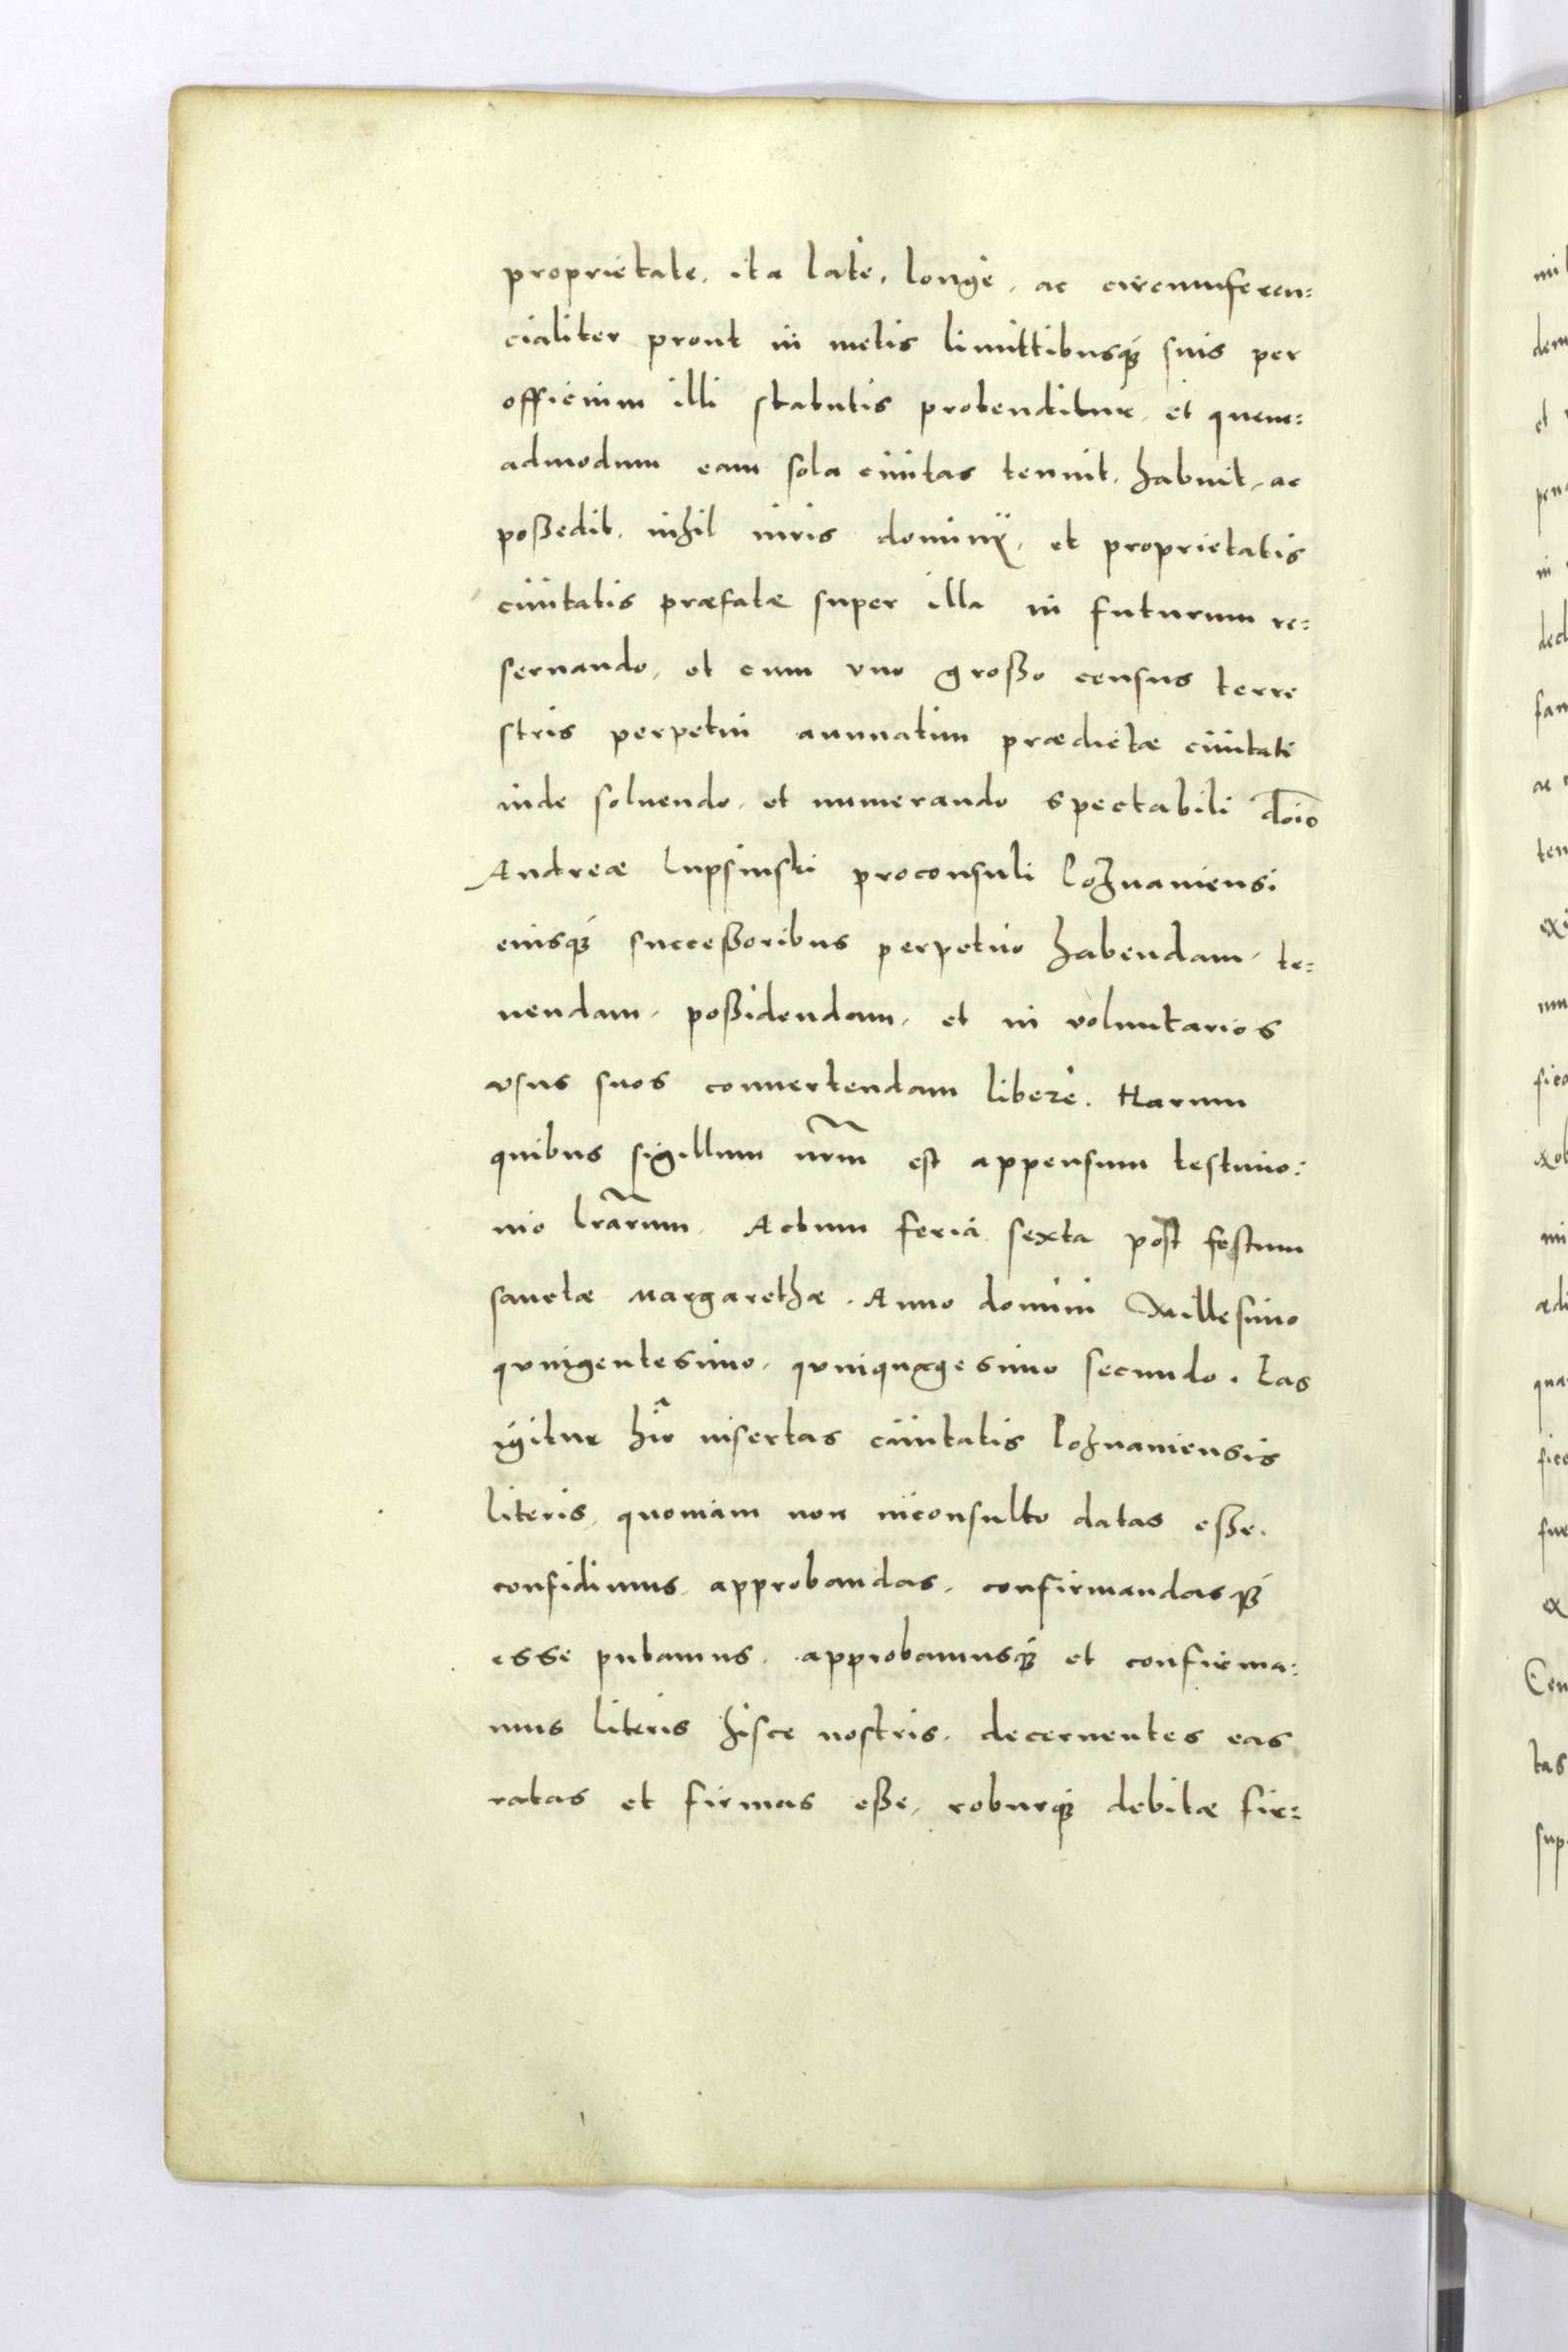 proprietate, ita late, longe, ac circumferen=
cialiter prout in metis limittibusq₃ suis per
officium illi statutis protenditur, et quem=
admodum eam sola ciuitas tenuit, habuit, ac
poßedit, nihil iuris dominÿ, et proprietatis
ciuitatis præfatæ super illa in futurum re=
seruando, et cum vno großo census terre
stris perpetui annuatim prædictæ ciuitati
inde soluendo, et numerando spectabili dn̄o
Andreæ Lupsinski proconsuli Poznaniensi
eiusq₃ succeßoribus perpetuo habendam, te=
nendam, poßidendam, et in voluntarios
vsus suos conuertendam liberè. Harum
quibus sigillum nr̄m est appensum testimo=
nio lr̄arum. Actum feria sexta post festum
sanctæ Margarethæ. Anno domini Millesimo
quingentesimo, quinquagesimo secundo. Eas
igitur hic insertas ciuitatis Poznaniensis
literis, quoniam non inconsulto datas eße,
confidimus, approbandas, confirmandasq₃
esse putamus, approbamusq₃ et confirma=
mus literis hisce nostris, decernentes eas
ratas et firmas eße, roburq₃ debitæ fir=